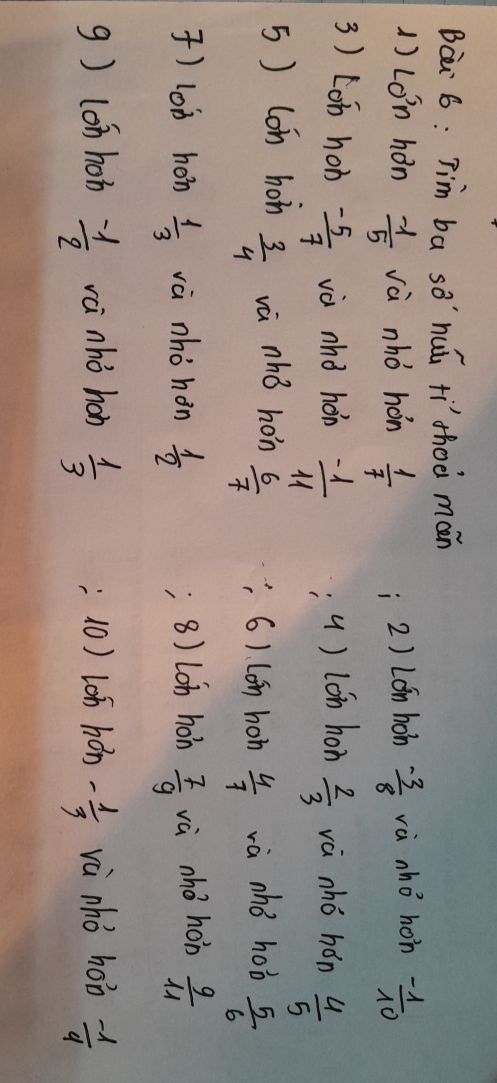 Bài 6: Tìm ba số hữu tỉ thoả mãn
1) Lớn hơn -1/5 và nhỏ hơn 1/7 ; 2) Lớn hơn -3/8 và nhỏ hơn -1/10
3) Lớn hơn -5/7 và nhỏ hơn -1/11 ; 4) Lớn hơn 2/3 và nhỏ hơn 4/5
5) Lớn hơn 3/4 và nhỏ hơn 6/7 ; 6) Lớn hơn 4/7 và nhỏ hơn 5/6
7) Lớn hơn 1/3 và nhỏ hơn 1/2 ; 8) Lớn hơn 7/9 và nhỏ hơn 9/11
9) Lớn hơn -1/2 và nhỏ hơn 1/3 ; 10) Lớn hơn -1/3 và nhỏ hơn -1/4